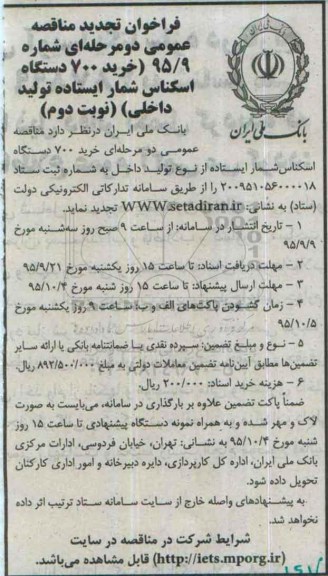 فراخوان تجدید مناقصه
عمومی دومرحله‌ای شماره
۹۵/۹ (خرید ۷۰۰ دستگاه
اسکناس شمار ایستاده تولید
داخلی) (نوبت دوم)
بانک ملی ایران
بانک ملی ایران درنظر دارد مناقصه
عمومی دو مرحله‌ای خرید ۷۰۰ دستگاه
اسکناس‌شمار ایستاده از نوع تولید داخل به شماره ثبت ستاد
۲۰۰۹۵۱۰۵۶۰۰۰۰۱۸ را از طریق سامانه تدارکاتی الکترونیکی دولت
(ستاد) به نشانی: WWW.setadiran.ir تجدید نماید.
۱ – تاریخ انتشار در سامانه: از ساعت ۹ صبح روز سه‌شنبه مورخ
۹۵/۹/۹
۲ – مهلت دریافت اسناد: تا ساعت ۱۵ روز یکشنبه مورخ ۹۵/۹/۲۱
۳ – مهلت ارسال پیشنهاد: تا ساعت ۱۵ روز شنبه مورخ ۹۵/۱۰/۴
۴ – زمان گشودن پاکت‌های الف و ب: ساعت ۹ روز یکشنبه مورخ
۹۵/۱۰/۵
۵ – نوع و مبلغ تضمین: سپرده نقدی یا ضمانتنامه بانکی یا ارائه سایر
تضمین‌ها مطابق آیین‌نامه تضمین معاملات دولتی به مبلغ ۸۹۲/۵۰۰/۰۰۰ ریال.
۶ – هزینه خرید اسناد: ۲۰۰/۰۰۰ ریال.
ضمناً پاکت تضمین علاوه بر بارگذاری در سامانه، می‌بایست به صورت
لاک و مهر شده و به همراه نمونه دستگاه پیشنهادی تا ساعت ۱۵ روز
شنبه مورخ ۹۵/۱۰/۴ به نشانی: تهران، خیابان فردوسی، ادارات مرکزی
بانک ملی ایران، اداره کل کارپردازی، دایره دبیرخانه و امور اداری کارکنان
تحویل داده شود.
به پیشنهادهای واصله خارج از سایت سامانه ستاد ترتیب اثر داده
نخواهد شد.
شرایط شرکت در مناقصه در سایت
(http://iets.mporg.ir) قابل مشاهده می‌باشد.